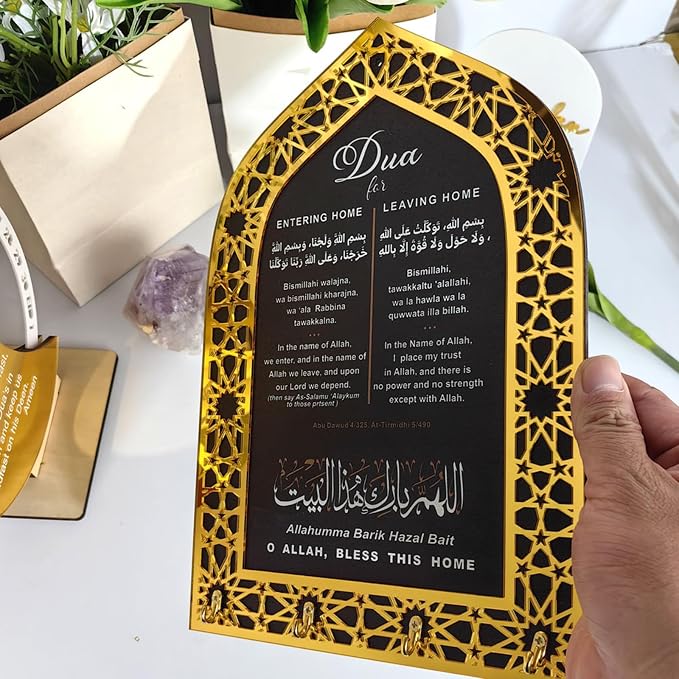 Dua
for
ENTERING HOME
بِسْمِ اللَّهِ وَلَجْنَا، وَبِسْمِ اللَّهِ
خَرَجْنَا، وَعَلَى اللَّهِ رَبِّنَا تَوَكَّلْنَا
Bismillahi walajna,
wa bismillahi kharajna,
wa 'ala Rabbina
tawakkalna.
...
In the name of Allah,
we enter, and in the name of
Allah we leave, and upon
our Lord we depend.
(then say As-Salamu 'Alaykum
to those prtsent )
LEAVING HOME
بِسْمِ اللَّهِ، تَوَكَّلْتُ عَلَى اللَّهِ
، وَلَا حَوْلَ وَلَا قُوَّةَ إِلَّا بِاللَّهِ
Bismillahi,
tawakkaltu 'alallahi,
wa la hawla wa la
quwwata illa billah.
...
In the Name of Allah,
I place my trust
in Allah, and there is
no power and no strength
except with Allah.
Abu Dawud 4-325, At-Tirmidhi 5/490
اللهم بارك هذا البيت
Allahumma Barik Hazal Bait
O ALLAH, BLESS THIS HOME
Dua's in
and keep us
on his Deen.
Ameen